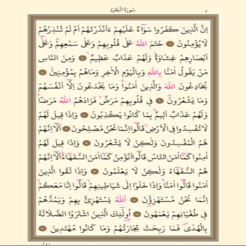 سُورَةُ الْبَقَرَةِ
إِنَّ الَّذِينَ كَفَرُوا سَوَاءٌ عَلَيْهِمْ ءَاَنْذَرْتَهُمْ اَمْ لَمْ تُنْذِرْهُمْ
لَا يُؤْمِنُونَ ۝ خَتَمَ اللهُ عَلَى قُلُوبِهِمْ وَعَلَى سَمْعِهِمْ وَعَلَى
اَبْصَارِهِمْ غِشَاوَةٌ وَلَهُمْ عَذَابٌ عَظِيمٌ ۝ وَمِنَ النَّاسِ
مَنْ يَقُولُ اٰمَنَّا بِاللهِ وَبِالْيَوْمِ الْاٰخِرِ وَمَا هُمْ بِمُؤْمِنِينَ ۝
يُخَادِعُونَ اللهَ وَالَّذِينَ اٰمَنُوا وَمَا يَخْدَعُونَ اِلَّا اَنْفُسَهُمْ
وَمَا يَشْعُرُونَ ۝ فِي قُلُوبِهِمْ مَرَضٌ فَزَادَهُمُ اللهُ مَرَضًا
وَلَهُمْ عَذَابٌ اَلِيمٌ بِمَا كَانُوا يَكْذِبُونَ ۝ وَاِذَا قِيلَ لَهُمْ
لَا تُفْسِدُوا فِي الْاَرْضِ قَالُوا اِنَّمَا نَحْنُ مُصْلِحُونَ ۝ اَلَا اِنَّهُمْ
هُمُ الْمُفْسِدُونَ وَلٰكِنْ لَا يَشْعُرُونَ ۝ وَاِذَا قِيلَ لَهُمْ
اٰمِنُوا كَمَا اٰمَنَ النَّاسُ قَالُوا اَنُؤْمِنُ كَمَا اٰمَنَ السُّفَهَاءُ اَلَا اِنَّهُمْ
هُمُ السُّفَهَاءُ وَلٰكِنْ لَا يَعْلَمُونَ ۝ وَاِذَا لَقُوا الَّذِينَ
اٰمَنُوا قَالُوا اٰمَنَّا وَاِذَا خَلَوْا اِلَى شَيَاطِينِهِمْ قَالُوا اِنَّا مَعَكُمْ
اِنَّمَا نَحْنُ مُسْتَهْزِؤُنَ ۝ اَللهُ يَسْتَهْزِئُ بِهِمْ وَيَمُدُّهُمْ
فِي طُغْيَانِهِمْ يَعْمَهُونَ ۝ اُولٰئِكَ الَّذِينَ اشْتَرَوُا الضَّلَالَةَ
بِالْهُدَى فَمَا رَبِحَتْ تِجَارَتُهُمْ وَمَا كَانُوا مُهْتَدِينَ ۝